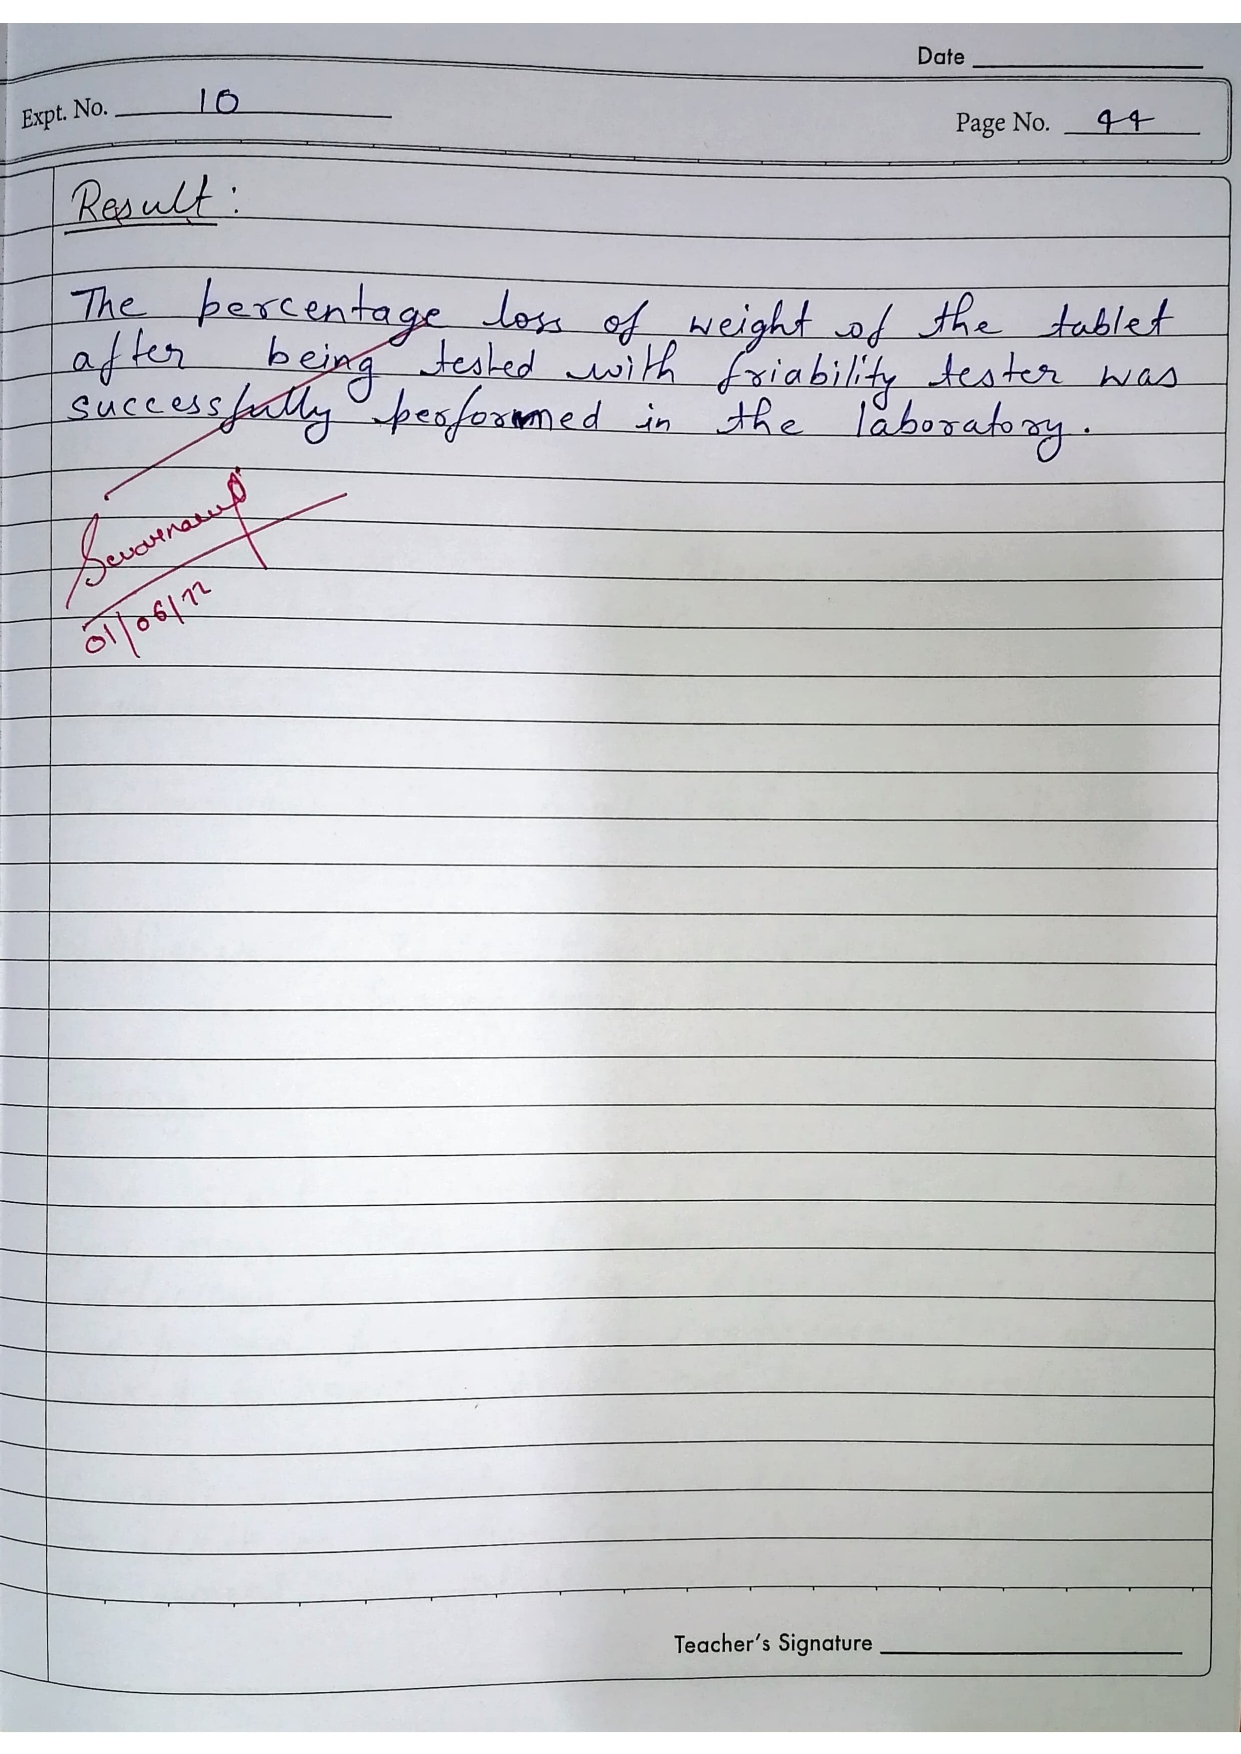 Date
Expt. No. 10
Page No. 44
Result:
The percentage loss of weight of the tablet
after being tested with friability tester was
successfully performed in the laboratory.
01/06/22
Teacher's Signature